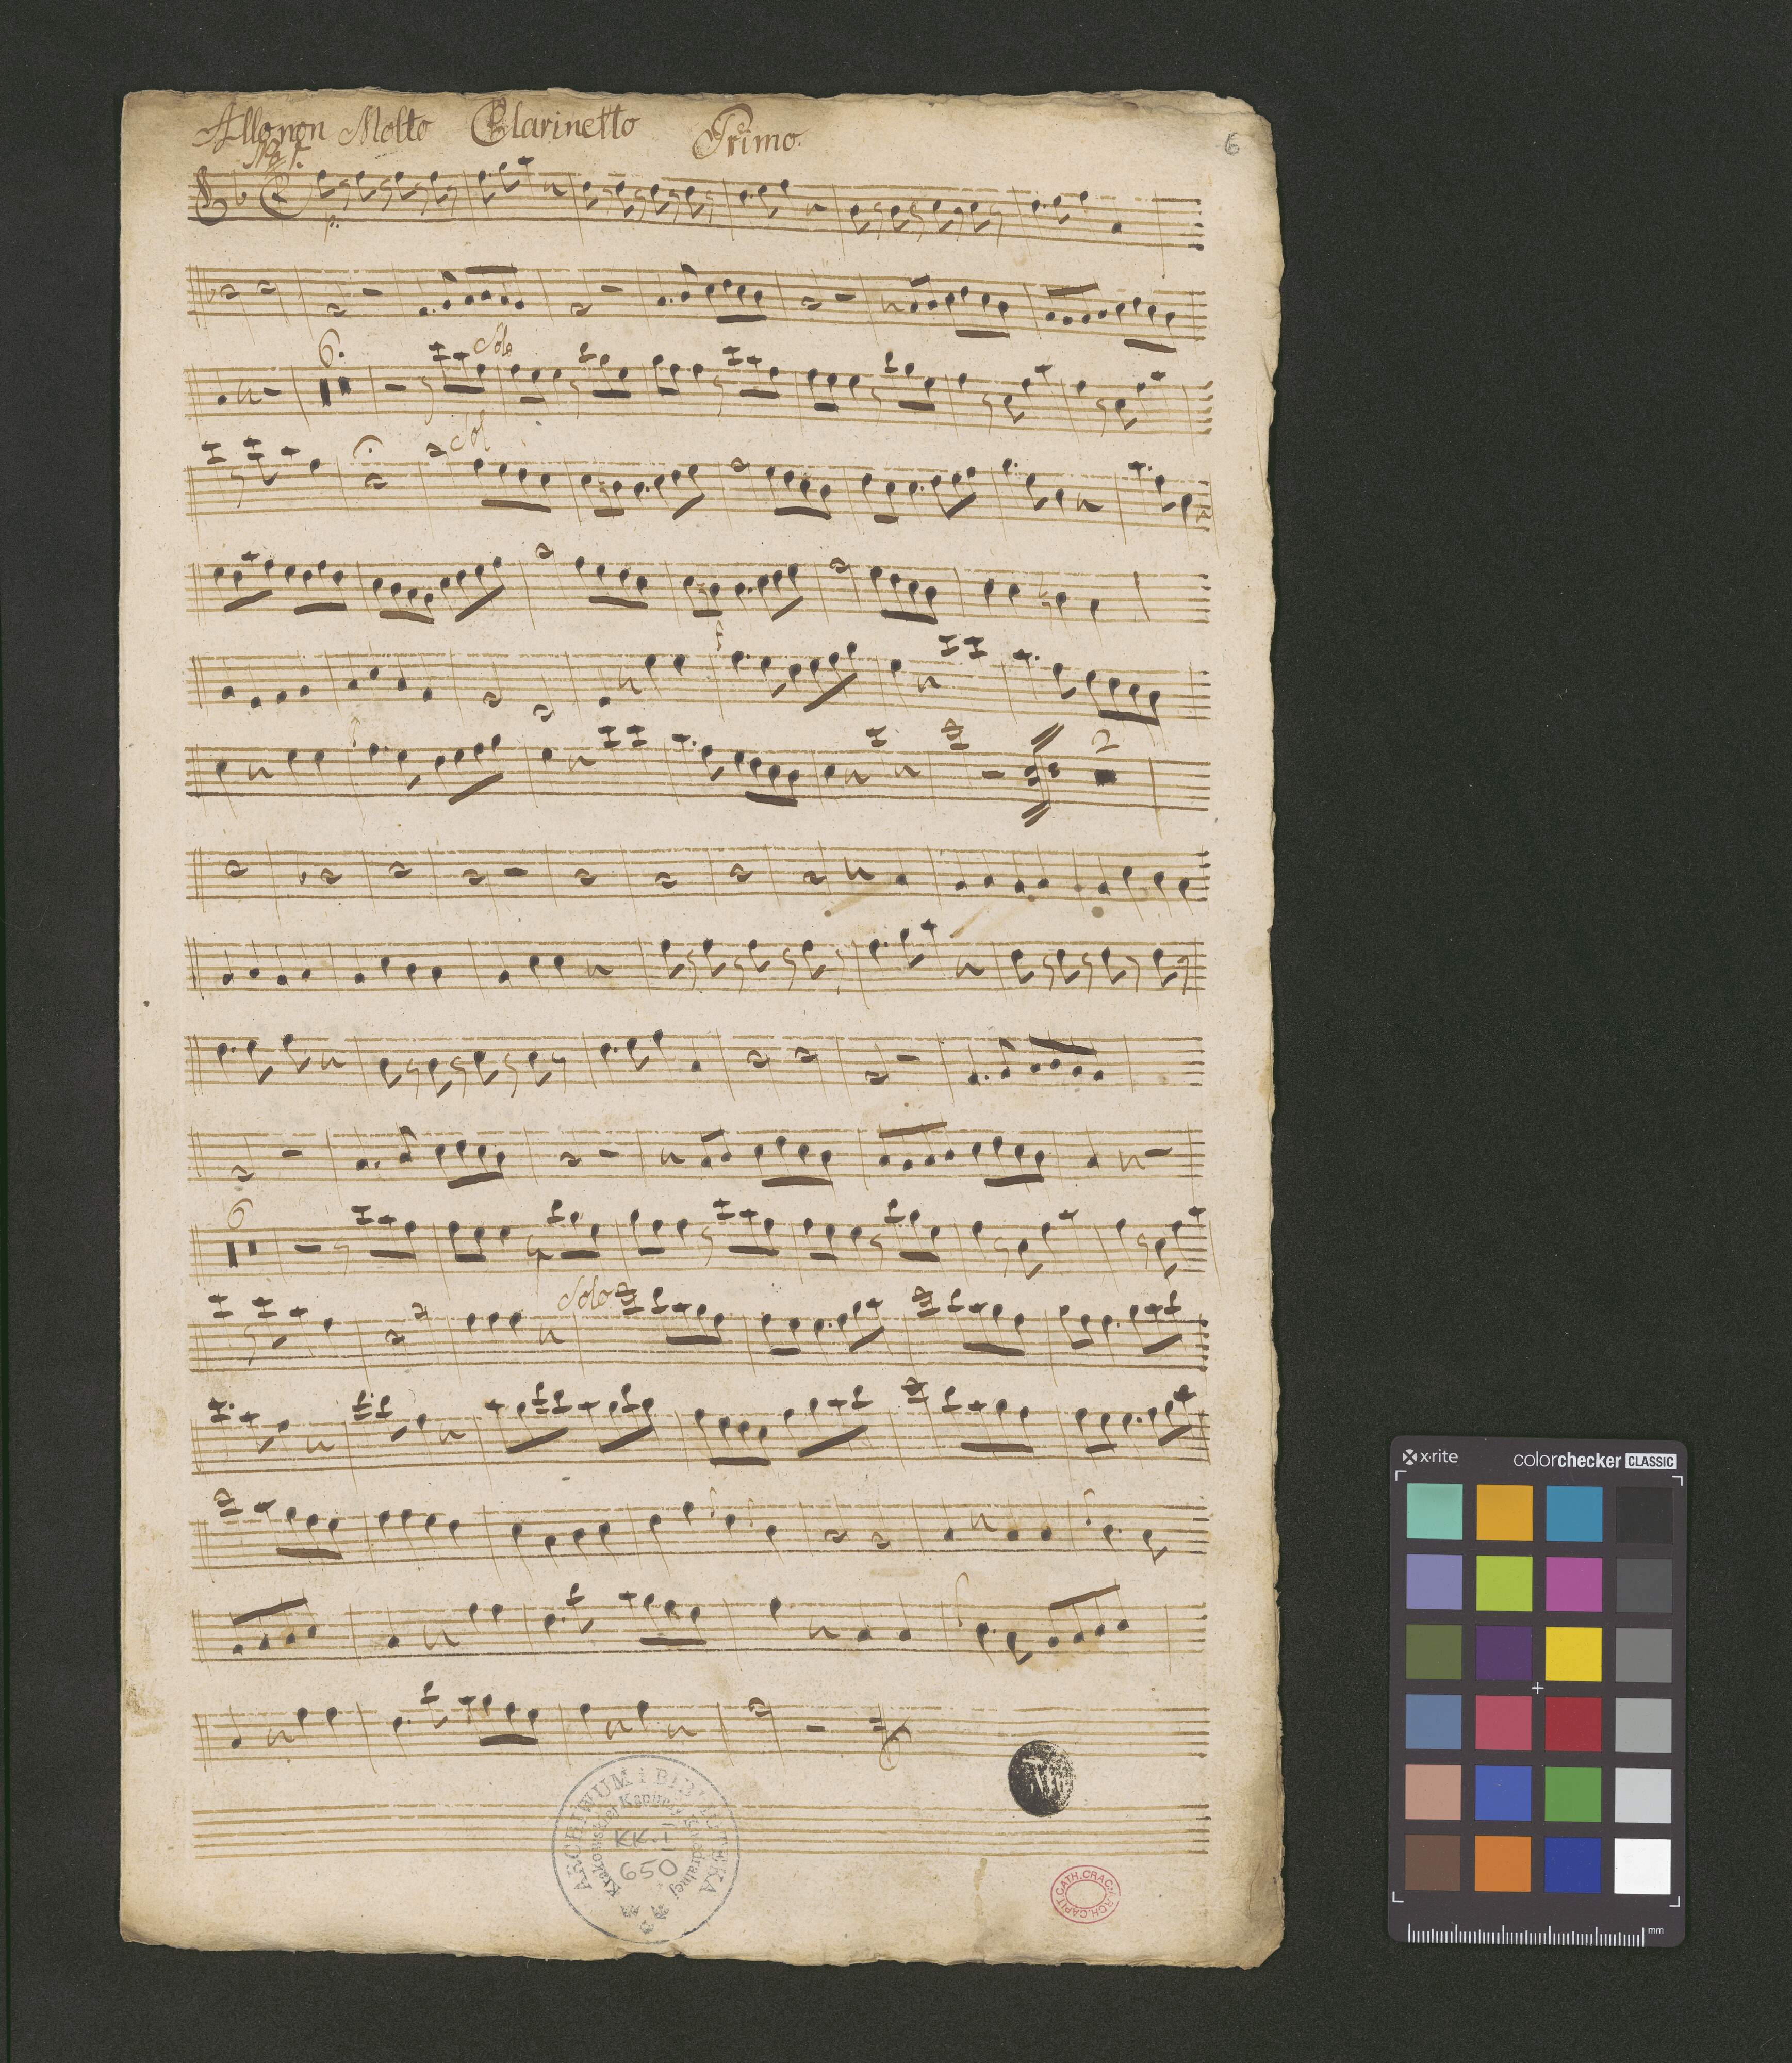 Allo non Molto Clarinetto Primo.
6
No 1.
p:
6.
Solo
Sol
2
6
Solo
ARCHIWUM i BIBLIOTEKA
Krakowskiej Kapituły Katedralnej
KK. I
650
ARCH. CAPIT. CATH. CRAC.
x-rite
colorchecker CLASSIC
mm